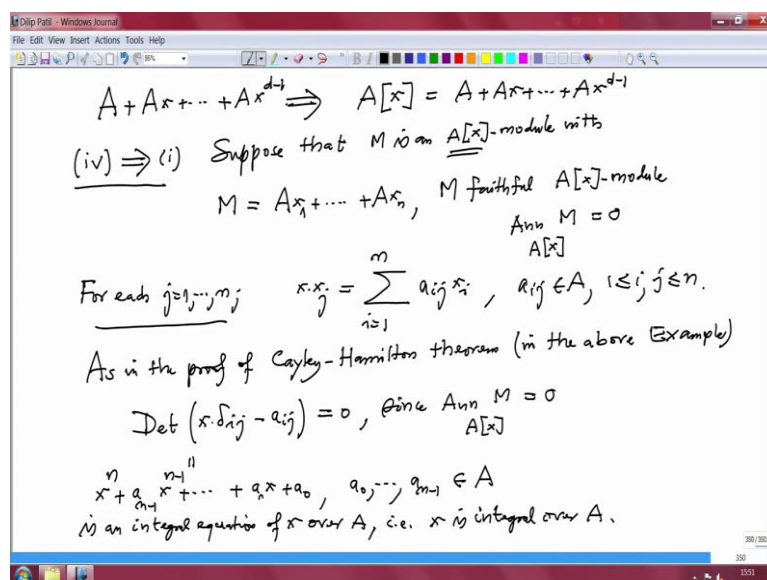 Dilip Patil - Windows Journal
File Edit View Insert Actions Tools Help
A + Ax + ⋯ + Ax^{d-1} ⟹ A[x] = A + Ax + ⋯ + Ax^{d-1}
(iv) ⟹ (i) Suppose that M is an A[x]-module with
M = Ax_1 + ⋯ + Ax_n, M faithful A[x]-module
Ann_{A[x]} M = 0
For each j=1,⋯,n; x·x_j = ∑_{i=1}^{n} a_{ij} x_i, a_{ij} ∈ A, 1≤i,j≤n.
As in the proof of Cayley-Hamilton theorem (in the above Example)
Det (x·δ_{ij} - a_{ij}) = 0, since Ann_{A[x]} M = 0
||
x^n + a_{n-1} x^{n-1} + ⋯ + a_n x + a_0, a_0, ⋯, a_{n-1} ∈ A
is an integral equation of x over A, i.e. x is integral over A.
350/350
350
1551